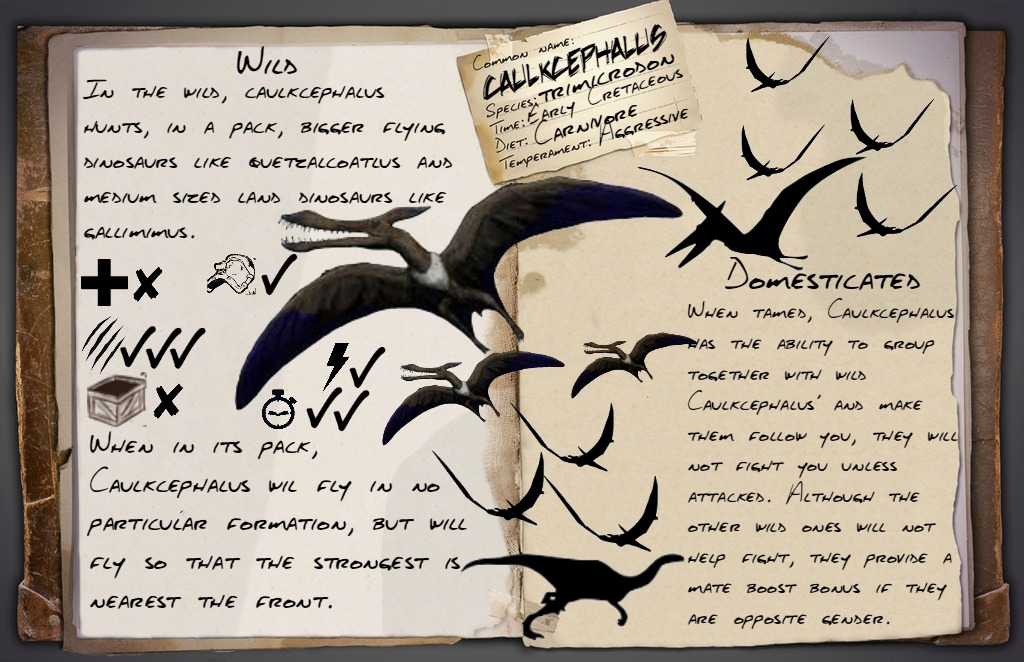 Wild
In the wild, caulkcephalus
hunts, in a pack, bigger flying
dinosaurs like Quetzalcoatlus and
medium sized land dinosaurs like
gallimimus.
When in its pack,
Caulkcephalus wil fly in no
particular formation, but will
fly so that the strongest is
nearest the front.
Common name:
Caulkcephallus
Species: Trimicrodon
Time: Early Cretaceous
Diet: Carnivore
Temperament: Aggressive
Domesticated
When tamed, Caulkcephalus
has the ability to group
together with wild
Caulkcephalus' and make
them follow you, they will
not fight you unless
attacked. Although the
other wild ones will not
help fight, they provide a
mate boost bonus if they
are opposite gender.